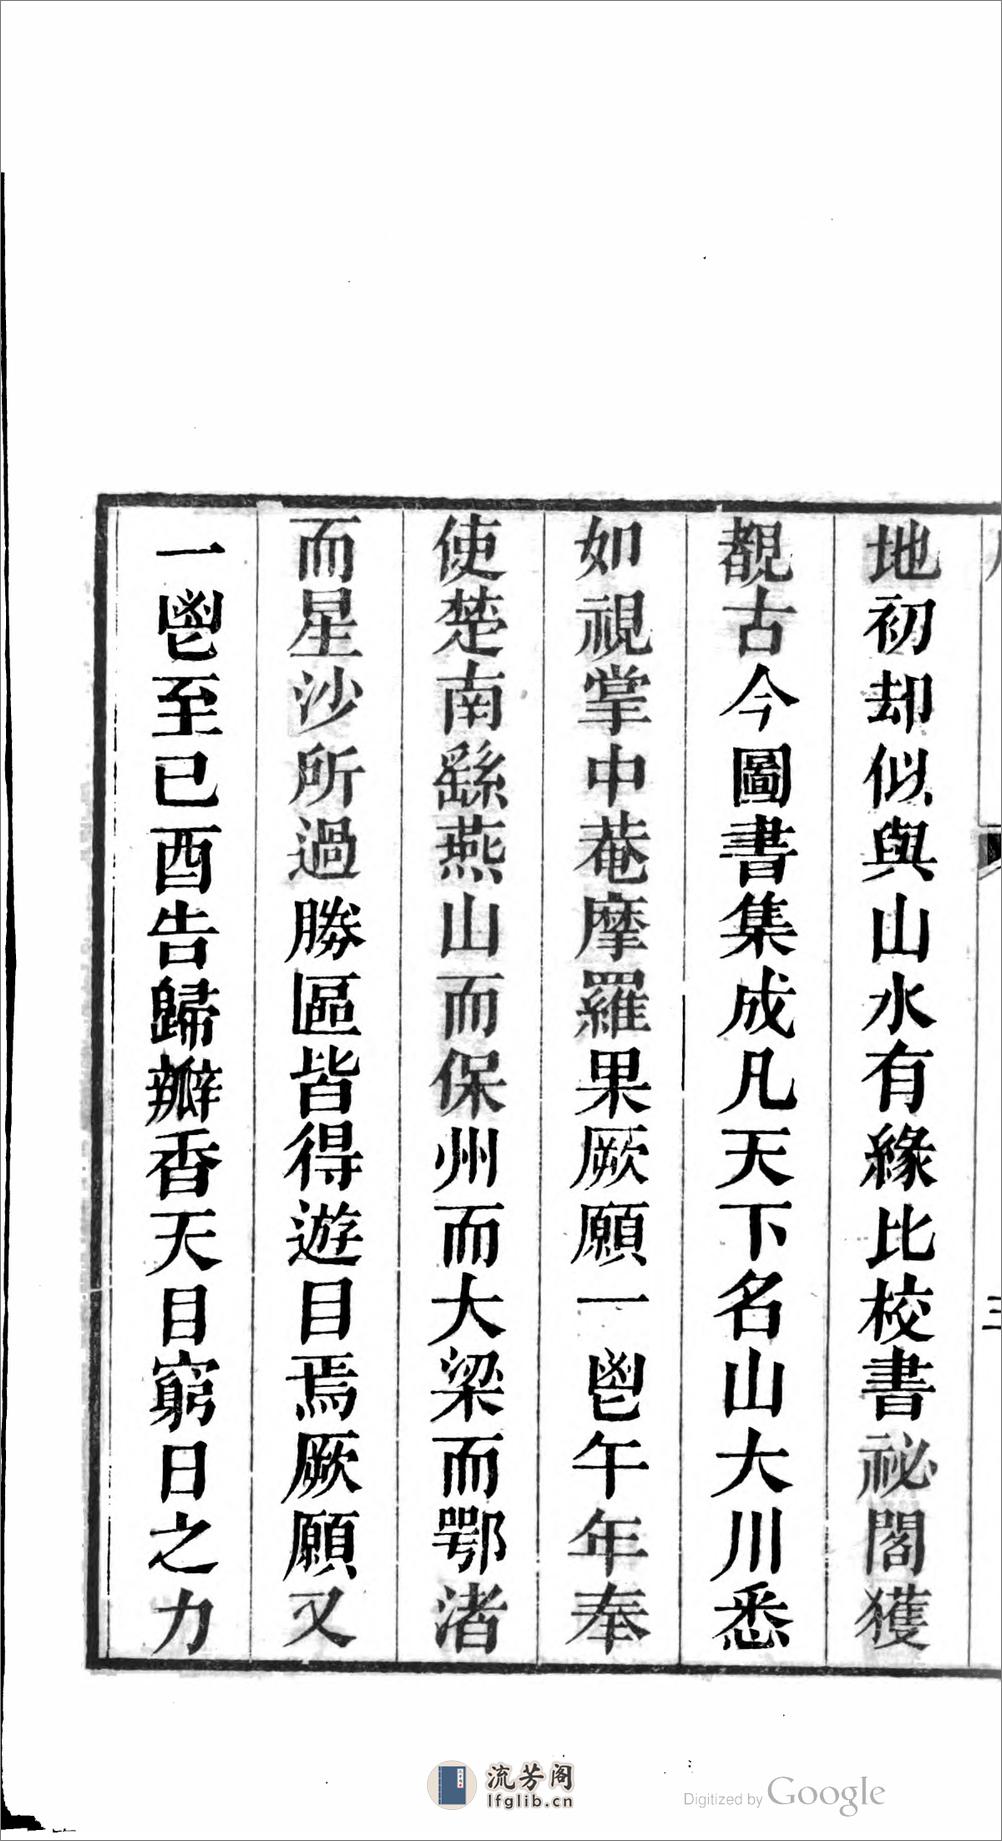 地初却似與山水有緣比校書祕閣獲
覩古今圖書集成凡天下名山大川悉
如視掌中菴摩羅果厥願一鬯午年奉
使楚南繇燕山而保州而大梁而鄂渚
而星沙所過勝區皆得遊目焉厥願又
一鬯至已酉告歸瓣香天目窮日之力
三
流芳阁
lfglib.cn
Digitized by Google